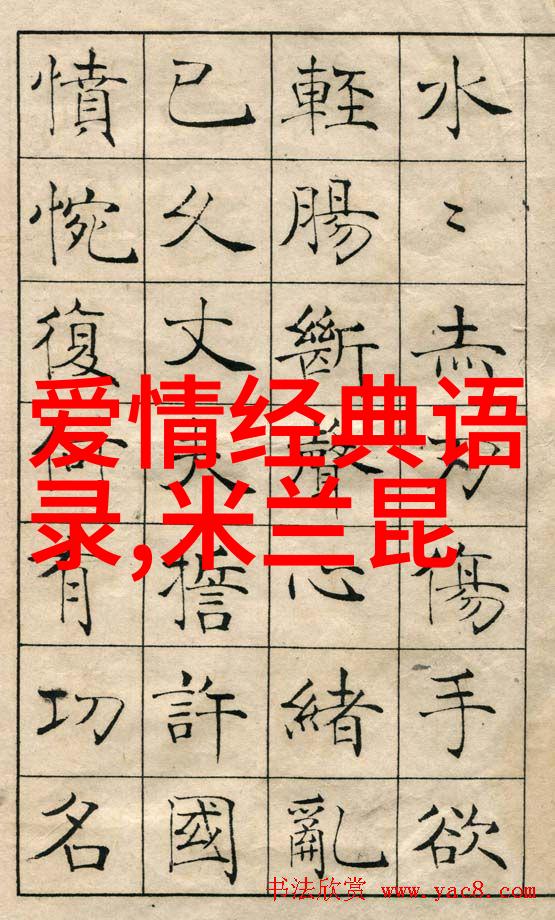 水〻赤刃傷手欲
輕腸斷聲心緒亂
已久丈夫誓許國
憤惋復何有功名
爱情经典语
录,米兰昆
书法欣赏 www.yac8.com